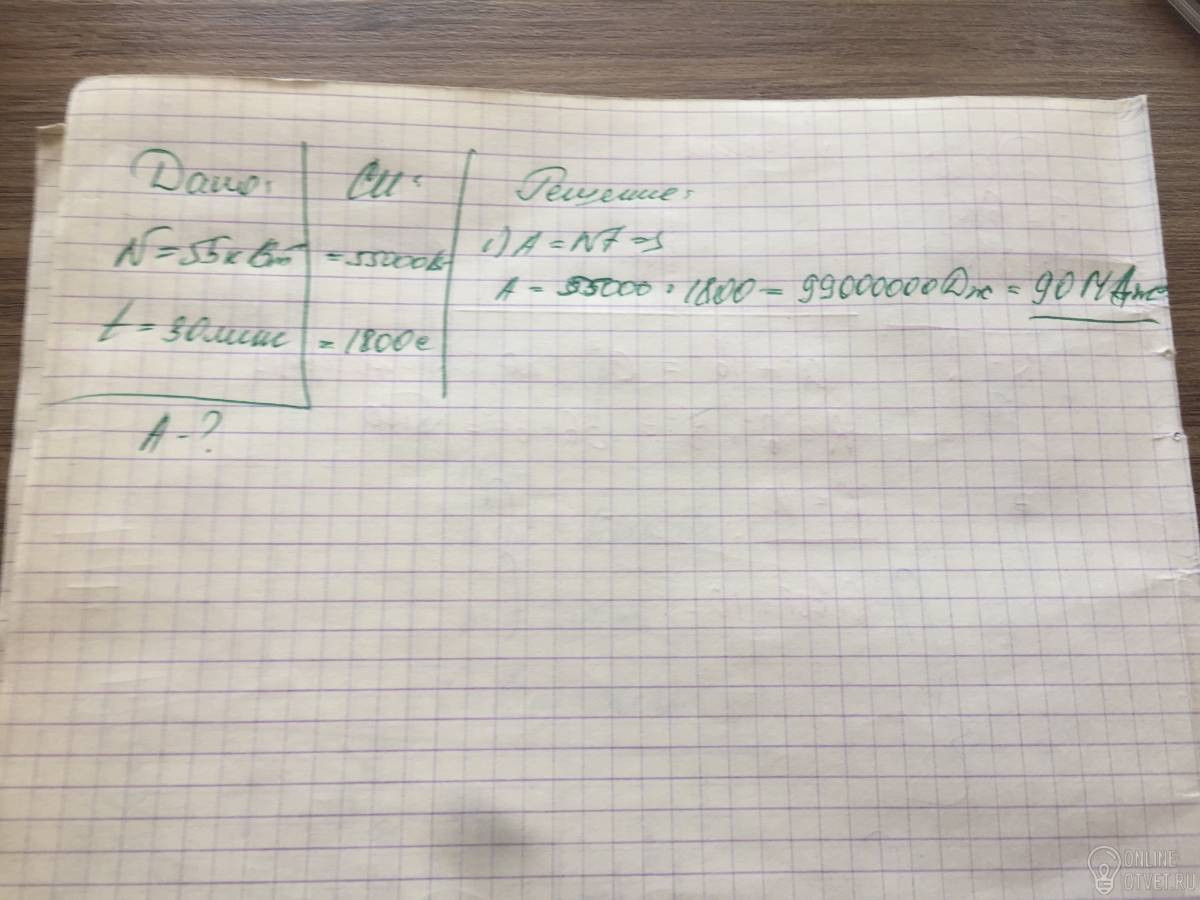 Дано:
СИ:
Решение:
N = 55 кВт
= 55000 Вт
1) A = Nt =>
A = 55000 · 1800 = 99000000 Дж = 90 МДж
t = 30 мин
= 1800 с
A - ?
ONLINE
OTVET.RU